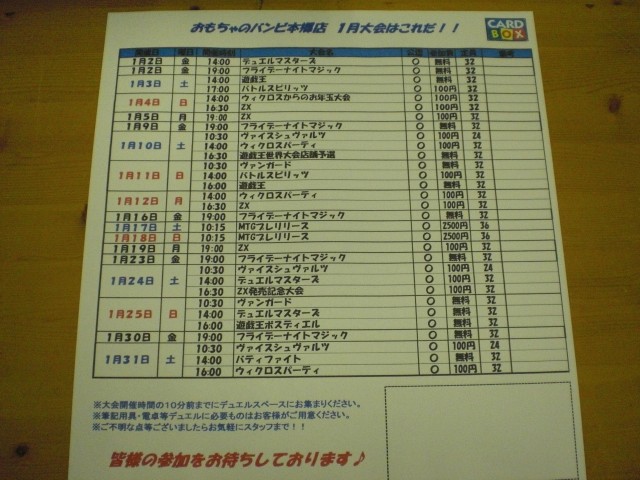 おもちゃのバンビ本郷店 1月大会はこれだ！！
CARD BOX
開催日 曜日 開催時刻 大会名 公認 参加費 定員 備考
1月2日 金 14:00 デュエルマスターズ ○ 無料 32
1月2日 金 19:00 フライデーナイトマジック ○ 無料 32
1月3日 土 14:00 遊戯王 ○ 無料 32
17:00 バトルスピリッツ ○ 100円 32
1月4日 日 14:00 ウィクロスからのお年玉大会 ○ 100円 32
16:30 ZX ○ 100円 32
1月5日 月 19:00 ZX ○ 100円 32
1月9日 金 19:00 フライデーナイトマジック ○ 無料 32
1月10日 土 10:30 ヴァイスシュヴァルツ ○ 100円 24
14:00 ウィクロスパーティ ○ 100円 32
16:30 遊戯王世界大会店舗予選 ○ 無料 32
1月11日 日 10:30 ヴァンガード ○ 無料 32
14:00 バトルスピリッツ ○ 100円 32
16:00 遊戯王 ○ 無料 32
1月12日 月 14:00 ウィクロスパーティ ○ 100円 32
16:30 ZX ○ 100円 32
1月16日 金 19:00 フライデーナイトマジック ○ 無料 32
1月17日 土 10:15 MTGプレリリース ○ 2500円 36
1月18日 日 10:15 MTGプレリリース ○ 2500円 36
1月19日 月 19:00 ZX ○ 100円 32
1月23日 金 19:00 フライデーナイトマジック ○ 無料 32
1月24日 土 10:30 ヴァイスシュヴァルツ ○ 100円 24
14:00 デュエルマスターズ ○ 無料 32
16:30 ZX発売記念大会 ○ 100円 32
1月25日 日 10:30 ヴァンガード ○ 無料 32
14:00 デュエルマスターズ ○ 無料 32
16:00 遊戯王ボスディエル ○ 無料 32
1月30日 金 19:00 フライデーナイトマジック ○ 無料 32
1月31日 土 10:30 ヴァイスシュヴァルツ ○ 100円 24
14:00 バディファイト ○ 100円 32
16:00 ウィクロスパーティ ○ 100円 32
※大会開催時間の10分前までにデュエルスペースにお集まりください。
※筆記用具・電卓等デュエルに必要ものはお客様がご用意ください。
※ご不明な点等ございましたらお気軽にスタッフまで！！
皆様の参加をお待ちしております♪